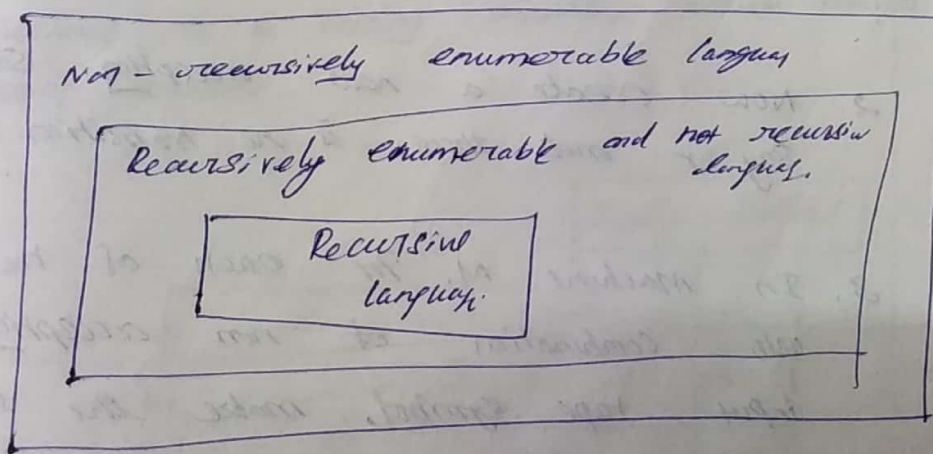 Non - recursively enumerable languag
Recursively enumerable and not recursiv
languag.
Recursive
language.